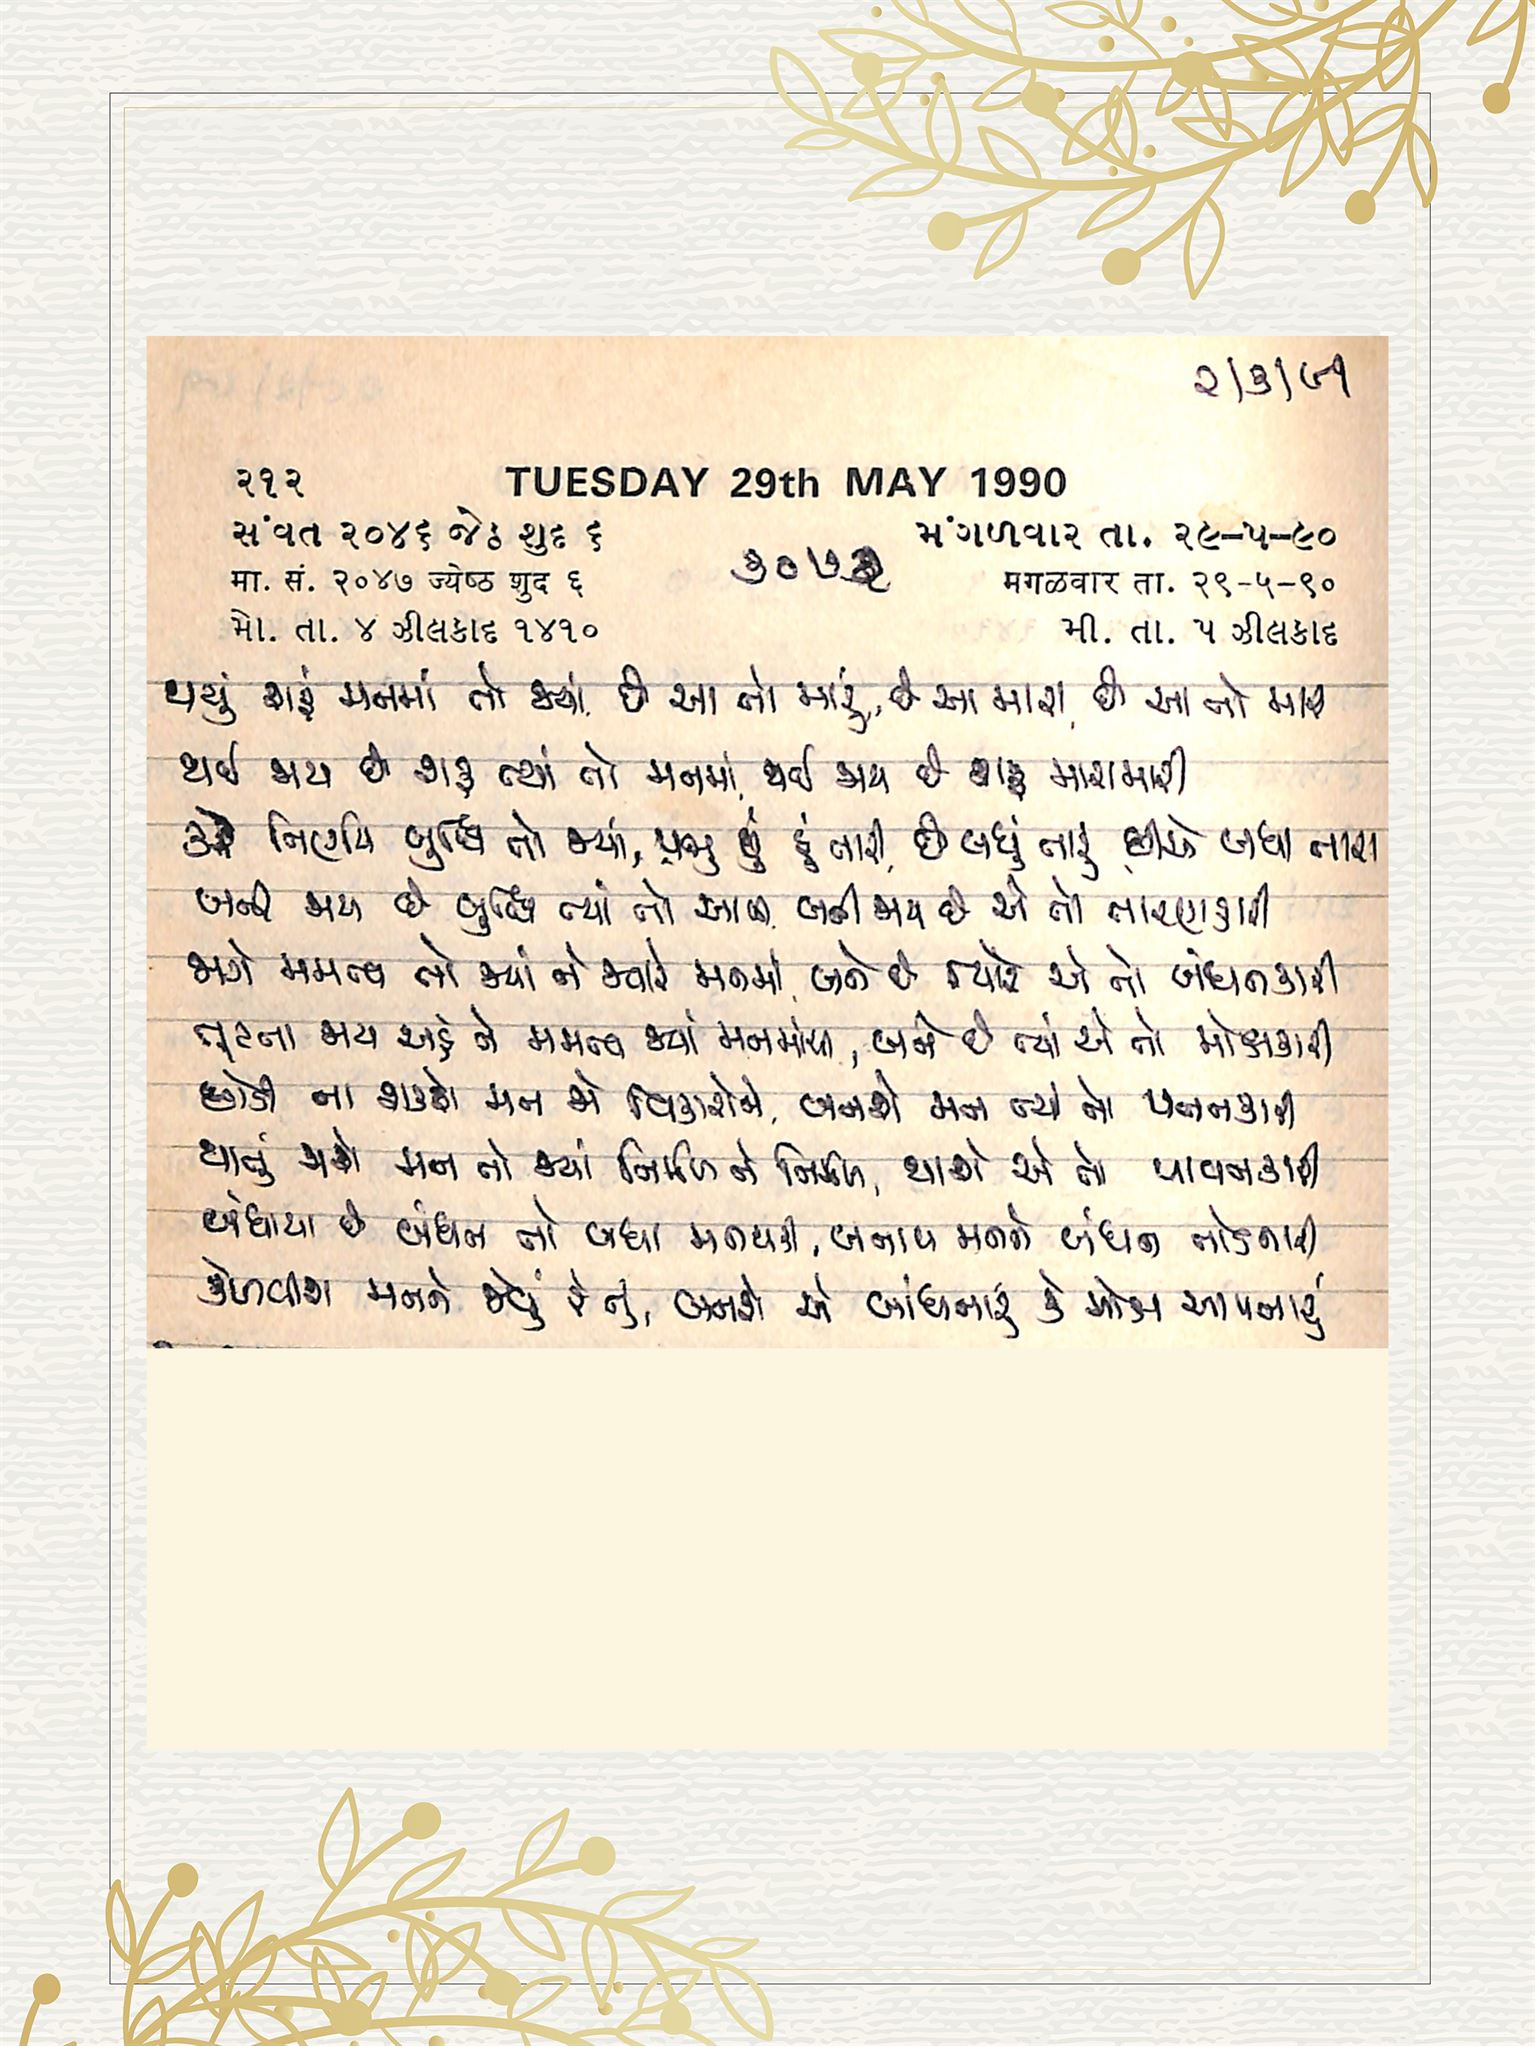 ૨/૩/૯૧
૨૧૨ TUESDAY 29th MAY 1990
સંવત ૨૦૪૬ જેઠ શુદ ૬ મંગળવાર તા. ૨૯-૫-૯૦
૩૦૭૨
मा. सं. २०४७ ज्येष्ठ शुद ६ मगळवार ता. २९-५-९०
મો. તા. ૪ ઝીલકાદ ૧૪૧૦ મી. તા. ૫ ઝીલકાદ
થયું શરૂં મનમાં તો જ્યાં, છે આ તો મારું, છે આ મારા, છે આ તો મારી
થઈ જાય છે શરૂ ત્યાં તો મનમાં, થઈ જાય છે શરૂ મારામારી
કરે નિર્ણય બુદ્ધિ તો જ્યાં, પ્રભુ છું હું તારી, છે બધું તારું છીએ બધા તારા
બની જાય છે બુદ્ધિ ત્યાં તો બની જાય છે એ તો તારણકારી
જાગે મમત્વ તો જ્યાં ને જ્યારે મનમાં, બને છે ત્યારે એ તો બંધનકારી
તૂટતા જાય અહં ને મમત્વ જ્યાં મનમાંથી, બને છે ત્યાં એ તો મોક્ષકારી
છોડી ના શકશે મન જો વિકારોને, બનશે મન ત્યાં તો પતનકારી
થાતું જાશે મન તો જ્યાં નિર્મળ ને નિર્મળ, થાશે એ તો પાવનકારી
બંધાયા છે બંધન તો બધા મનથકી, બનાવ મનને બંધન તોડનારી
કેળવીશ મનને જેવું રે તું, બનશે એ બાંધનારું કે મોક્ષ આપનારું